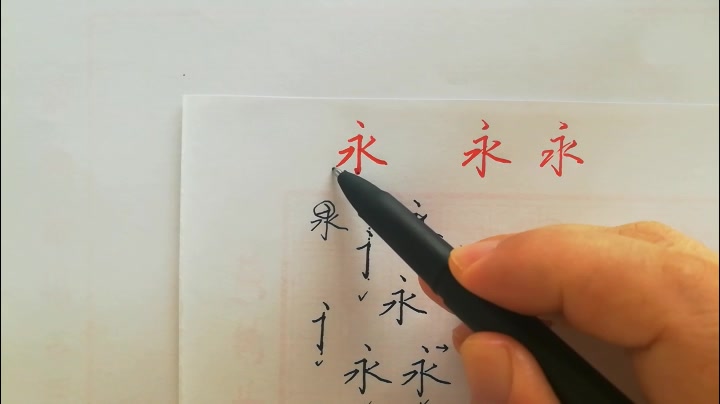 永 永 永
永
永
永 永